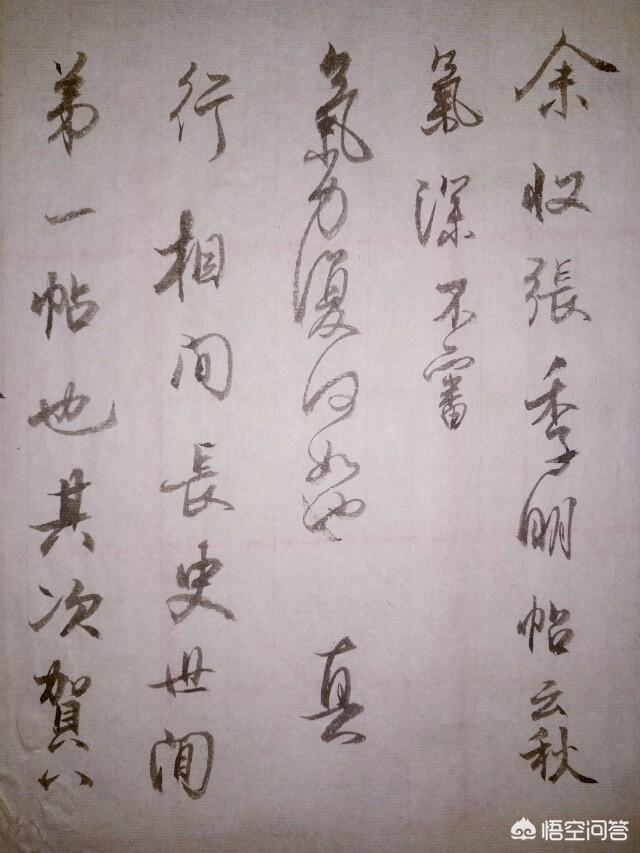 余收張季明帖云秋
氣深不審
氣力復何如也 真
行相间長史世间
第一帖也其次賀八
悟空问答